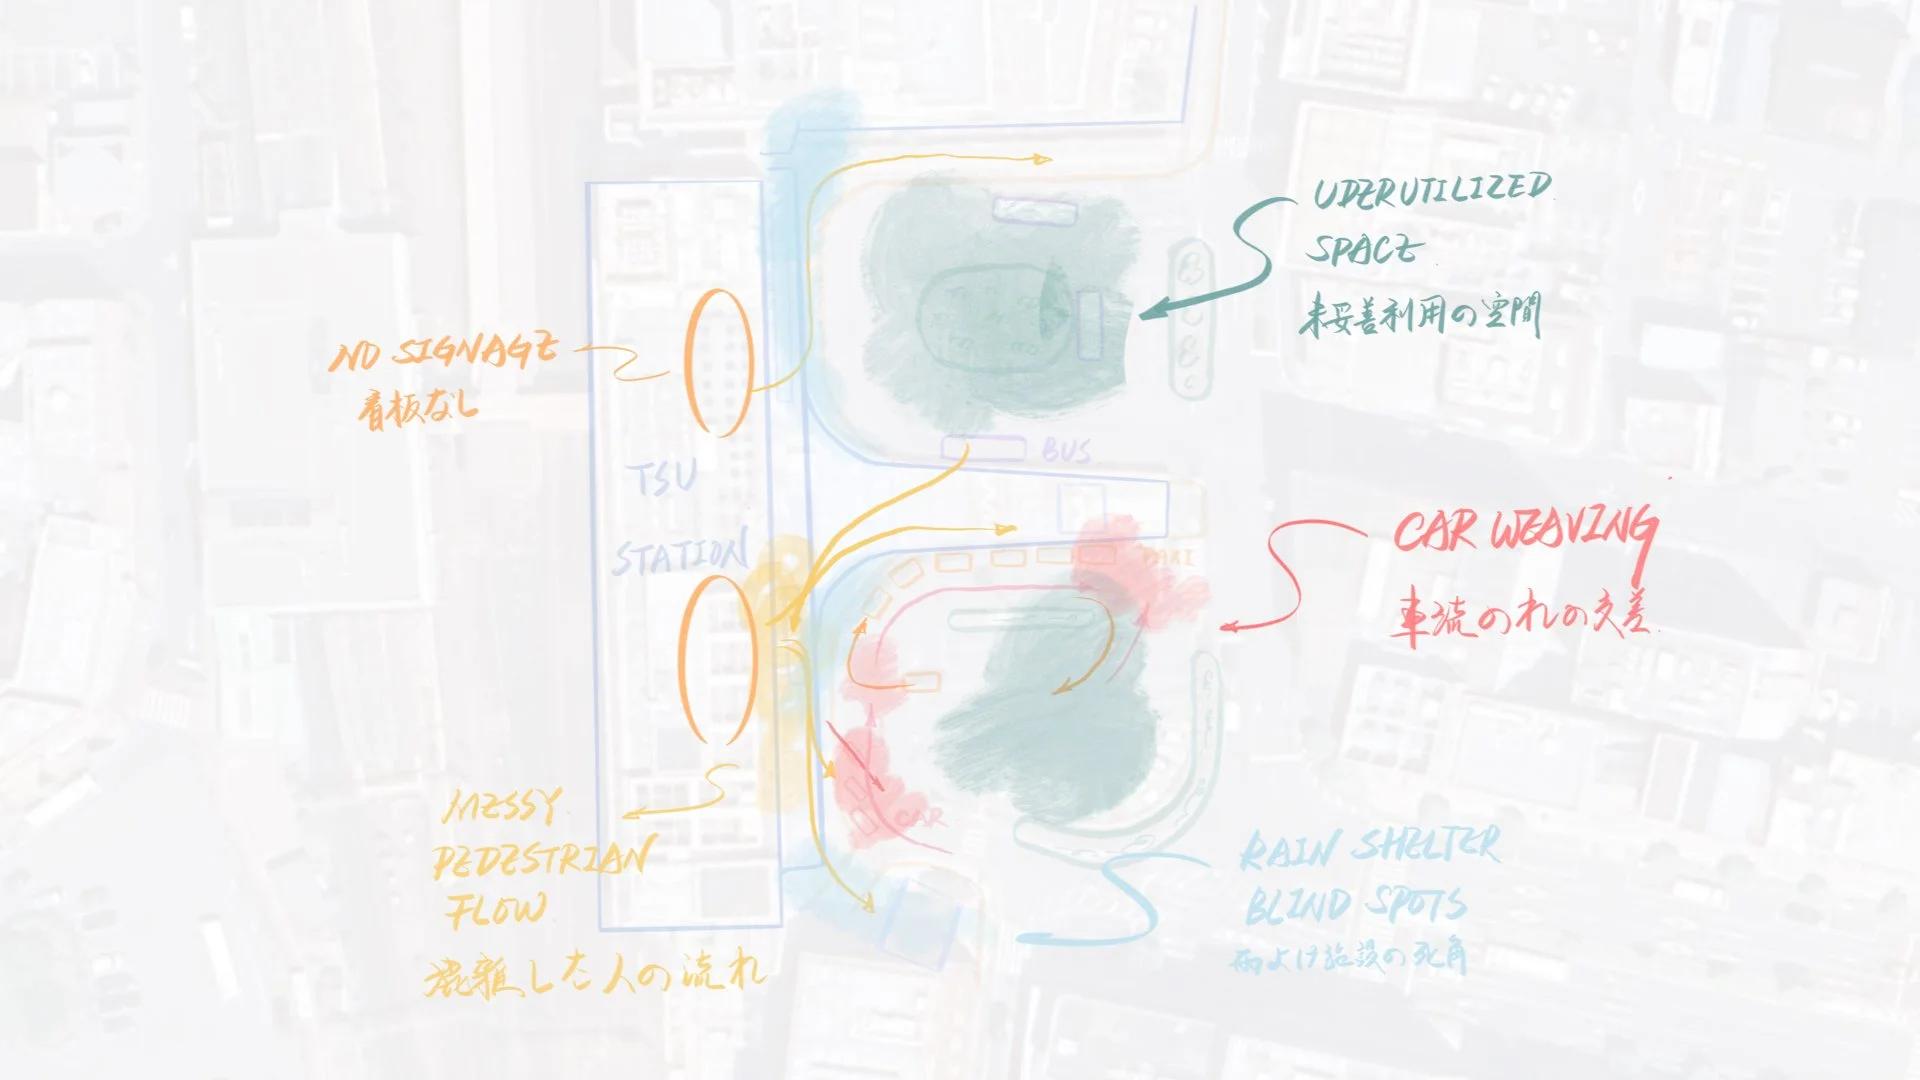 UDERUTILIZED
SPACE
未妥善利用の空間
NO SIGNAGE
看板なし
TSU
STATION
BUS
CAR WEAVING
車流のれの交差
CAR
MESSY
PEDESTRIAN
FLOW
混雑した人の流れ
RAIN SHELTER
BLIND SPOTS
雨よけ施設の死角